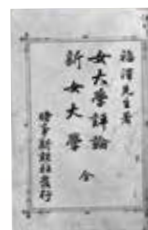 福澤先生著
女大学評論
新女大學 全
時事新報社發行